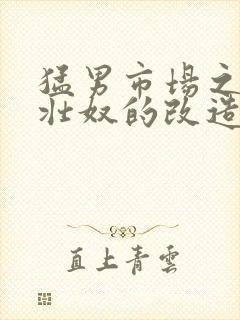 猛男市場之
壯奴的改造
直上青雲